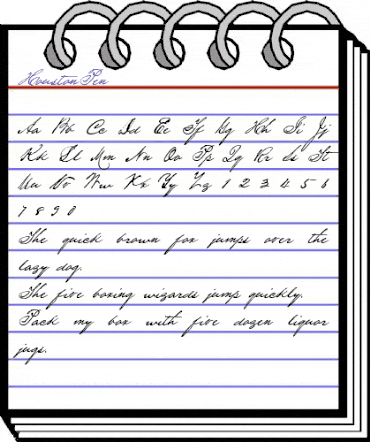 Houston Pen
Aa Bb Cc Dd Ee Ff Gg Hh Ii Jj
Kk Ll Mm Nn Oo Pp Qq Rr Ss Tt
Uu Vv Ww Xx Yy Zz 1 2 3 4 5 6
7 8 9 0
The quick brown fox jumps over the
lazy dog.
The five boxing wizards jump quickly.
Pack my box with five dozen liquor
jugs.